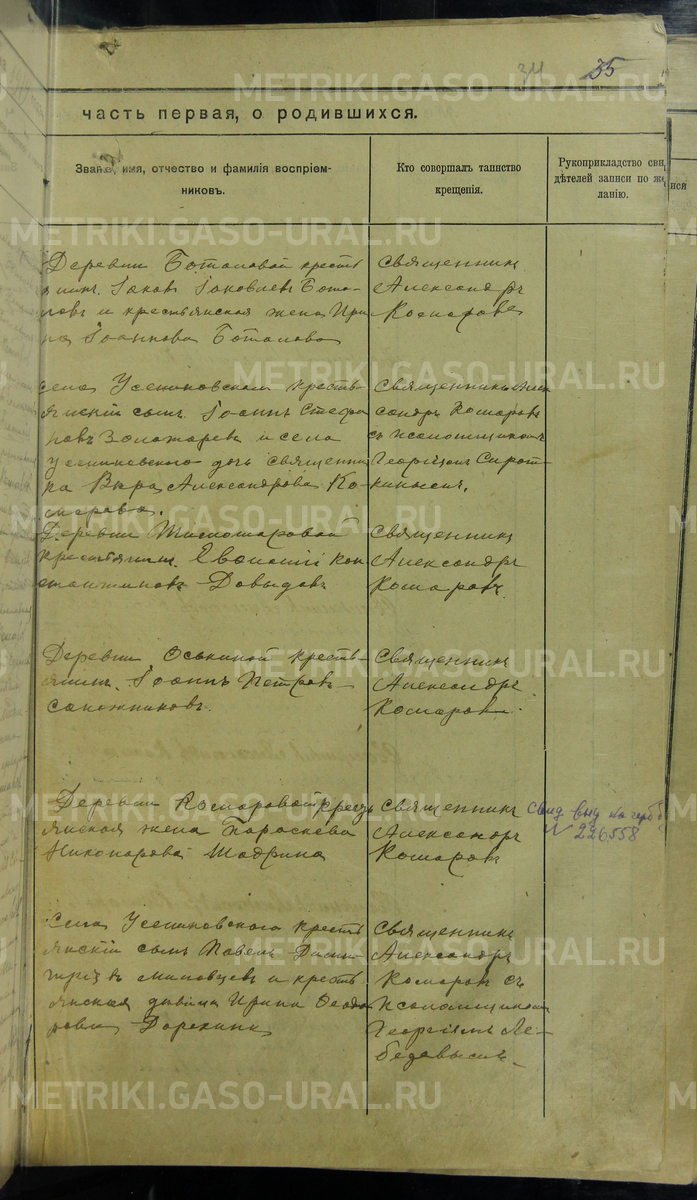 34 35
часть первая, о родившихся.
Званіе, имя, отчество и фамилія воспріем-
никовъ.
Кто совершалъ таинство
крещенія.
Рукоприкладство сви
дѣтелей записи по же
ланію.
ися
Деревни Боталовой кресть
янинъ Іаковъ Іаковлевъ Бота-
ловъ и крестьянская жена Ири
на Іоаннова Боталова
Священникъ
Александръ
Комаровъ
села Усениновскаго кресть-
янскій сынъ Іоаннъ Стефа
новъ Золотаревъ и села
Усениновскаго дочь священни
ка Вѣра Александрова Ко-
марова.
Священникъ Алек
сандръ Комаровъ
съ псаломщикомъ
Георгіемъ Сирот-
кинымъ.
Деревни
крестьянинъ Евѳимій Кон
стантиновъ Давыдовъ
Священникъ
Александръ
Комаровъ
Деревни Оськиной кресть-
янинъ Іоаннъ Петровъ
Сапожниковъ.
Священникъ
Александръ
Комаровъ.
Деревни Комаровой кресть
янская жена Параскева
Никонорова Шадрина
Священникъ
Александръ
Комаровъ
Свид выд на герб б
№ 226558
Села Усениновскаго кресть
янскій сынъ Павелъ Дими-
тріевъ и кресть
янская дѣвица Ирина Ѳеодо
рова
Священникъ
Александръ
Комаровъ съ
псаломщикомъ
Георгіемъ Ле-
бедевымъ
METRIKI.GASO-URAL.RU
METRIKI.GASO-URAL.RU
METRIKI.GASO-URAL.RU
METRIKI.GASO-URAL.RU
METRIKI.GASO-URAL.RU
METRIKI.GASO-URAL.RU
METRIKI.GASO-URAL.RU
METRIKI.GASO-URAL.RU